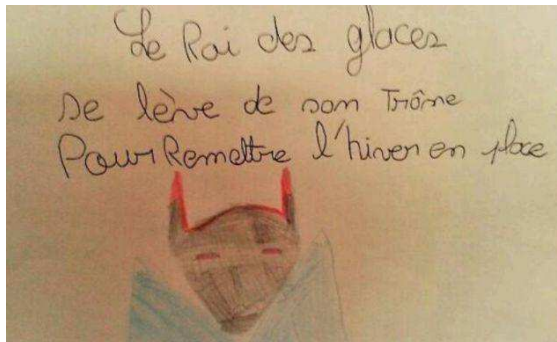 Le Roi des glaces
se lève de son Trône
Pour Remettre l'hiver en place